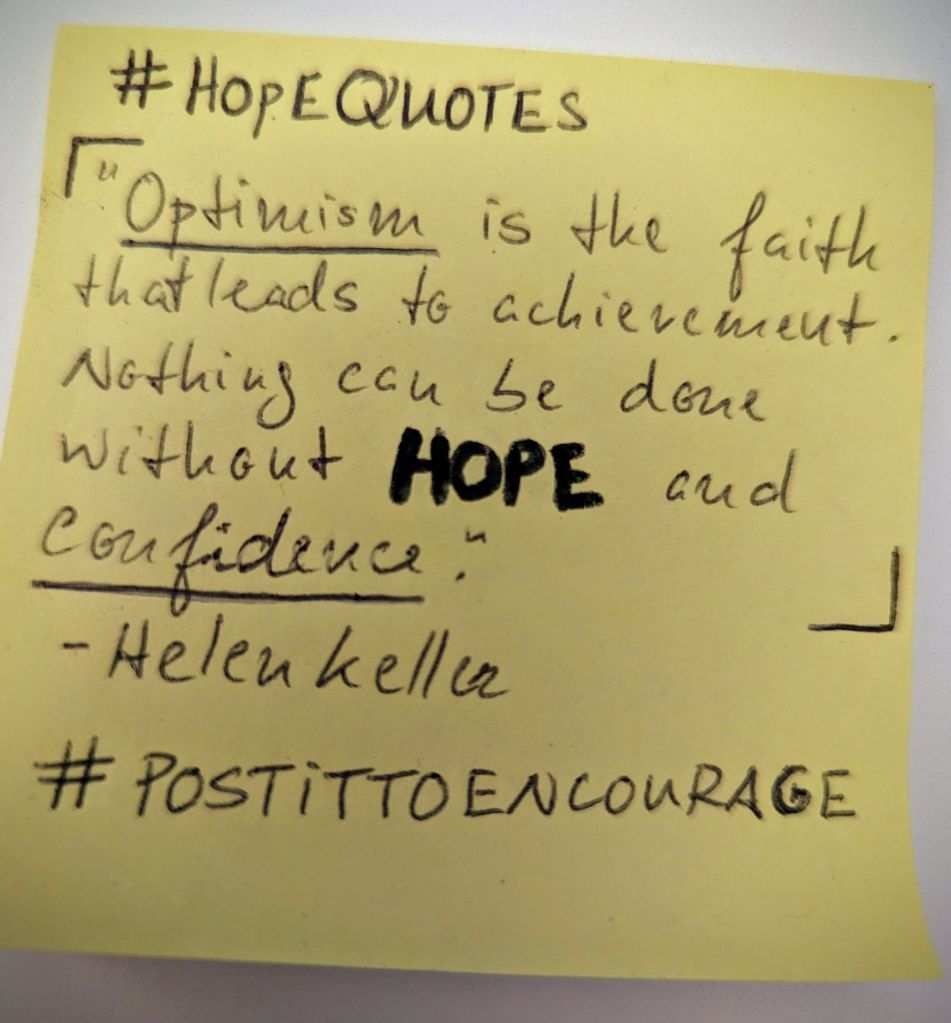 #HOPEQUOTES
"Optimism is the faith
that leads to achievement.
Nothing can be done
without HOPE and
confidence."
- Helen Keller
#POSTiTTOENCOURAGE